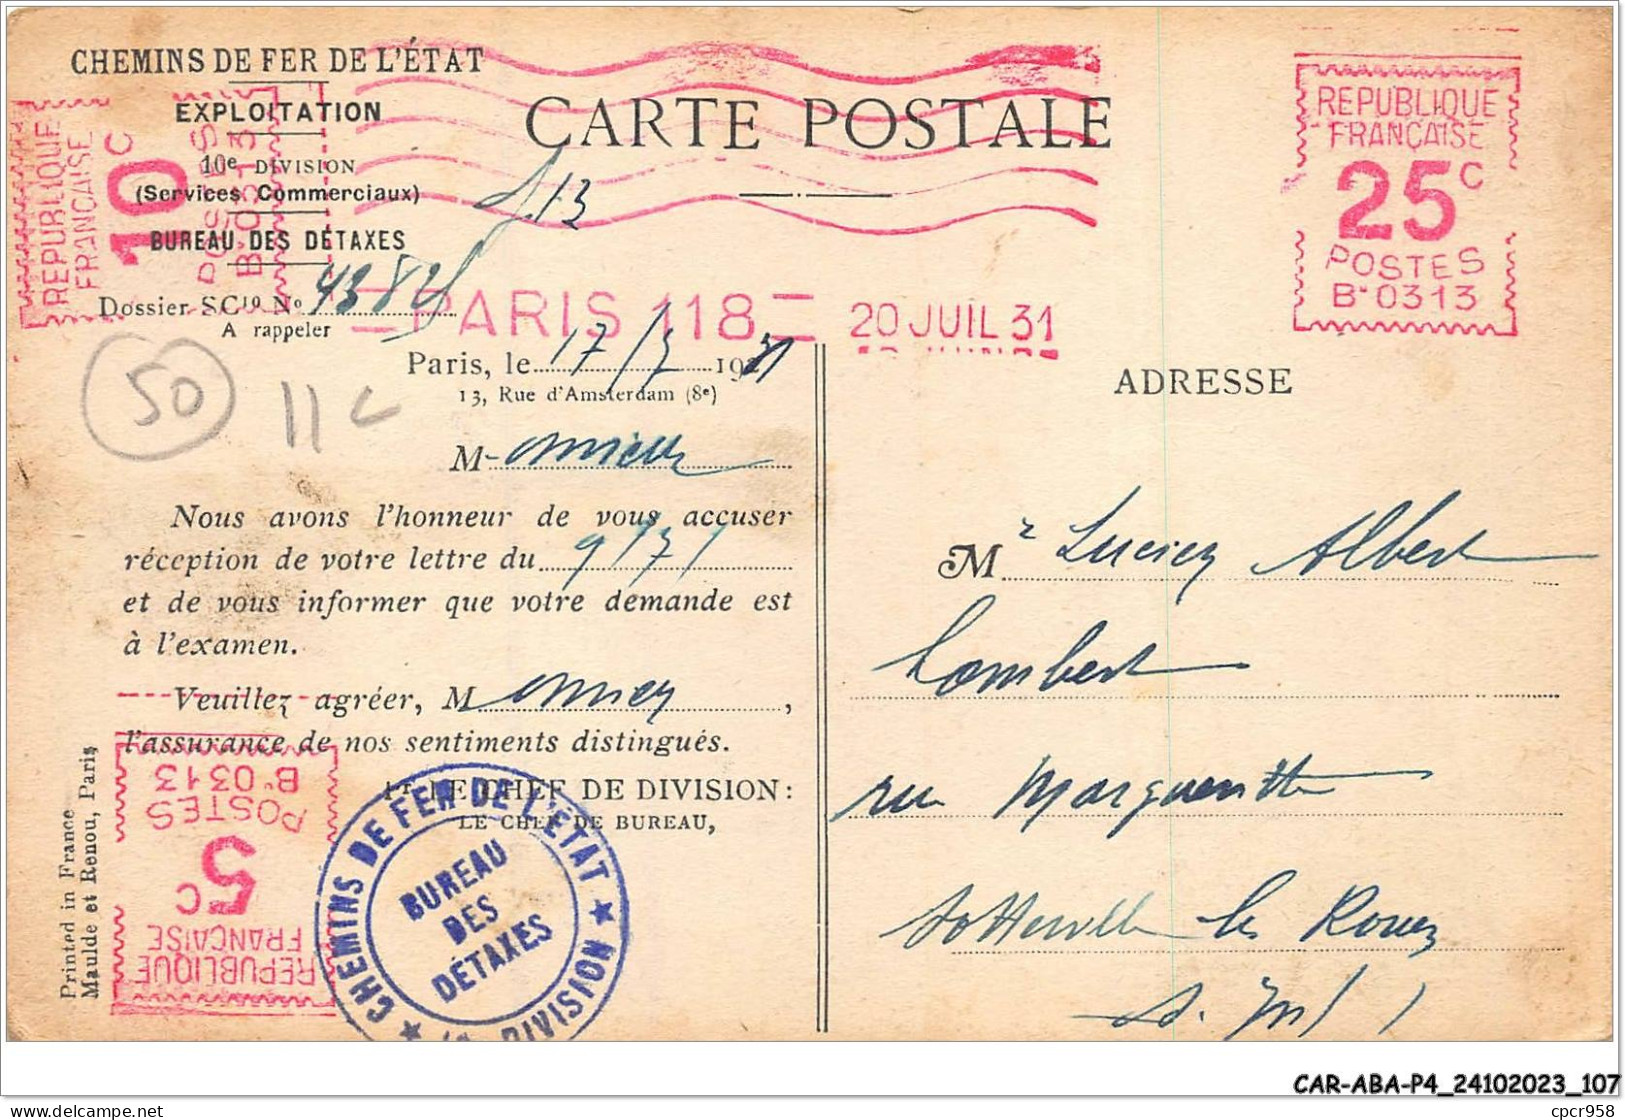 CHEMINS DE FER DE L'ÉTAT
EXPLOITATION
10e DIVISION
(Services Commerciaux)
BUREAU DES DÉTAXES
Dossier SCie No 4382
A rappeler
CARTE POSTALE
REPUBLIQUE
FRANÇAISE
25c
POSTES
B.0313
REPUBLIQUE
FRANÇAISE
10c
POSTES
B.0313
PARIS 118
20 JUIL 31
Paris, le 17/7 1931
13, Rue d'Amsterdam (8e)
50
11c
M onsieur
Nous avons l'honneur de vous accuser
réception de votre lettre du 9/7
et de vous informer que votre demande est
à l'examen.
Veuillez agréer, M onsieur,
l'assurance de nos sentiments distingués.
LE CHEF DE DIVISION:
LE CHEF DE BUREAU,
CHEMINS DE FER DE L'ÉTAT
BUREAU
DES
DÉTAXES
DIVISION
REPUBLIQUE
FRANÇAISE
5c
POSTES
B.0313
Printed in France
Maulde et Renou, Paris
ADRESSE
Mr Lucien Albert
Lambert
rue Marguerite
Sotteville les Rouen
S. Inf
CAR-ABA-P4_24102023_107
delcampe.net
cpcr958